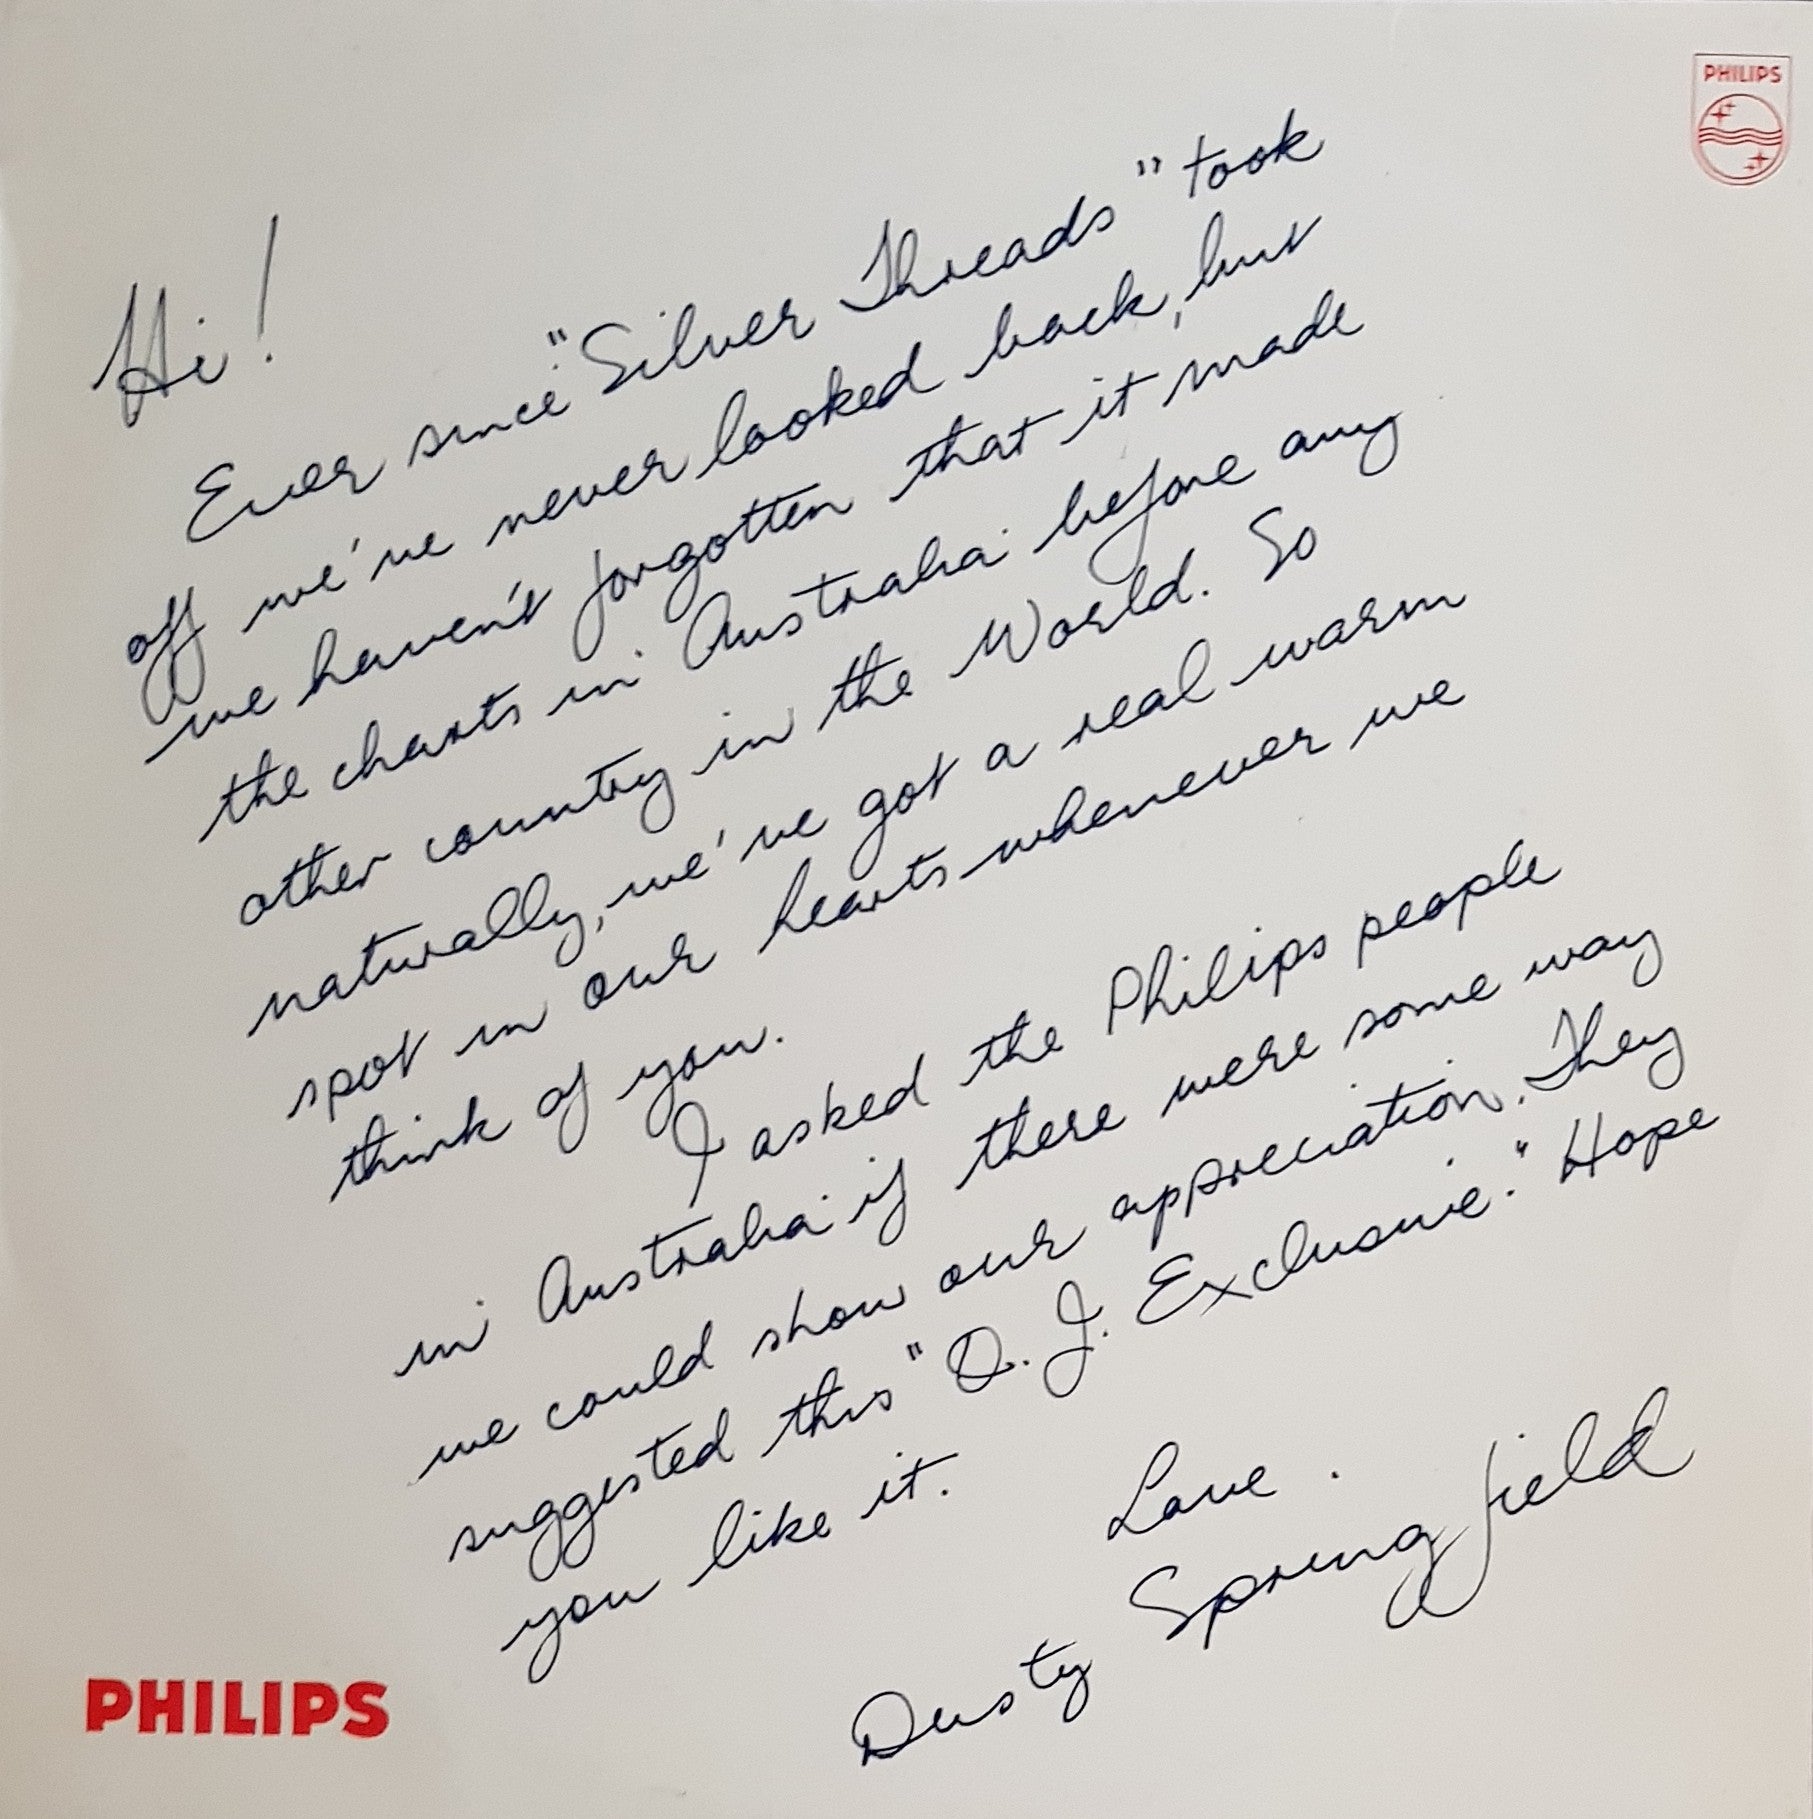 PHILIPS
Hi!
Ever since "Silver Threads" took
off we've never looked back, but
we haven't forgotten that it made
the charts in Australia before any
other country in the World. So
naturally, we've got a real warm
spot in our hearts whenever we
think of you.
I asked the Philips people
in Australia if there were some way
we could show our appreciation. They
suggested this "D. J. Exclusive." Hope
you like it.
Love.
Dusty Springfield
PHILIPS